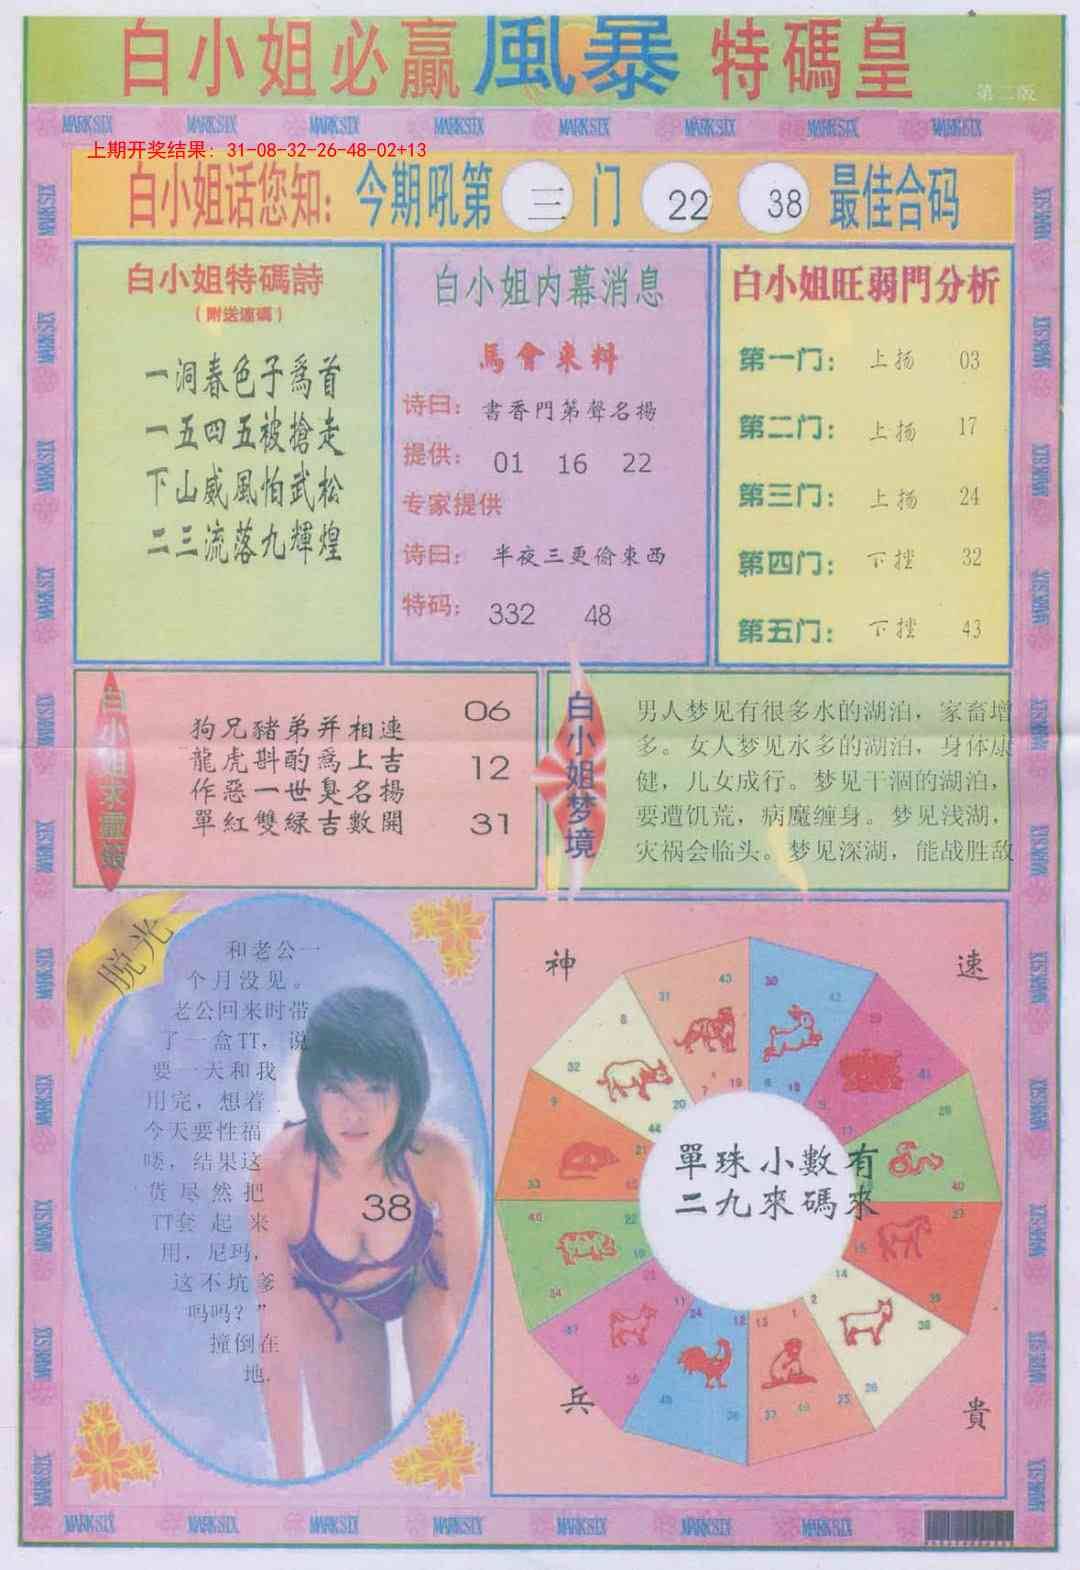 白小姐必贏風暴特碼皇
第二版
MARK SIX MARK SIX MARK SIX MARK SIX MARK SIX MARK SIX MARK SIX MARK SIX
上期开奖结果：31-08-32-26-48-02+13
白小姐话您知：今期吼第 三 门 22 38 最佳合码
白小姐特碼詩
（附送連碼）
一洞春色子爲首
一五四五被搶走
下山威風怕武松
二三流落九輝煌
白小姐内幕消息
馬會來料
诗曰：書香門第聲名揚
提供：01 16 22
专家提供
诗曰：半夜三更偷東西
特码：332 48
白小姐旺弱門分析
第一门：上扬 03
第二门：上扬 17
第三门：上扬 24
第四门：下挫 32
第五门：下挫 43
白小姐求靈簽
狗兄豬弟并相連
龍虎斟酌爲上吉
作惡一世臭名揚
單紅雙緑吉數開
06
12
31
白小姐梦境
男人梦见有很多水的湖泊，家畜增
多。女人梦见水多的湖泊，身体康
健，儿女成行。梦见干涸的湖泊，
要遭饥荒，病魔缠身。梦见浅湖，
灾祸会临头。梦见深湖，能战胜敌
脱光
和老公一
个月没见。
老公回来时带
了一盒TT，说
要一天和我
用完，想着
今天要性福
喽，结果这
货尽然把
TT套起来
用，尼玛，
这不坑爹
吗吗？”
撞倒在
地.
38
神
速
單珠小數有
二九來碼來
兵
貴
MARK SIX MARK SIX MARK SIX MARK SIX MARK SIX MARK SIX MARK SIX